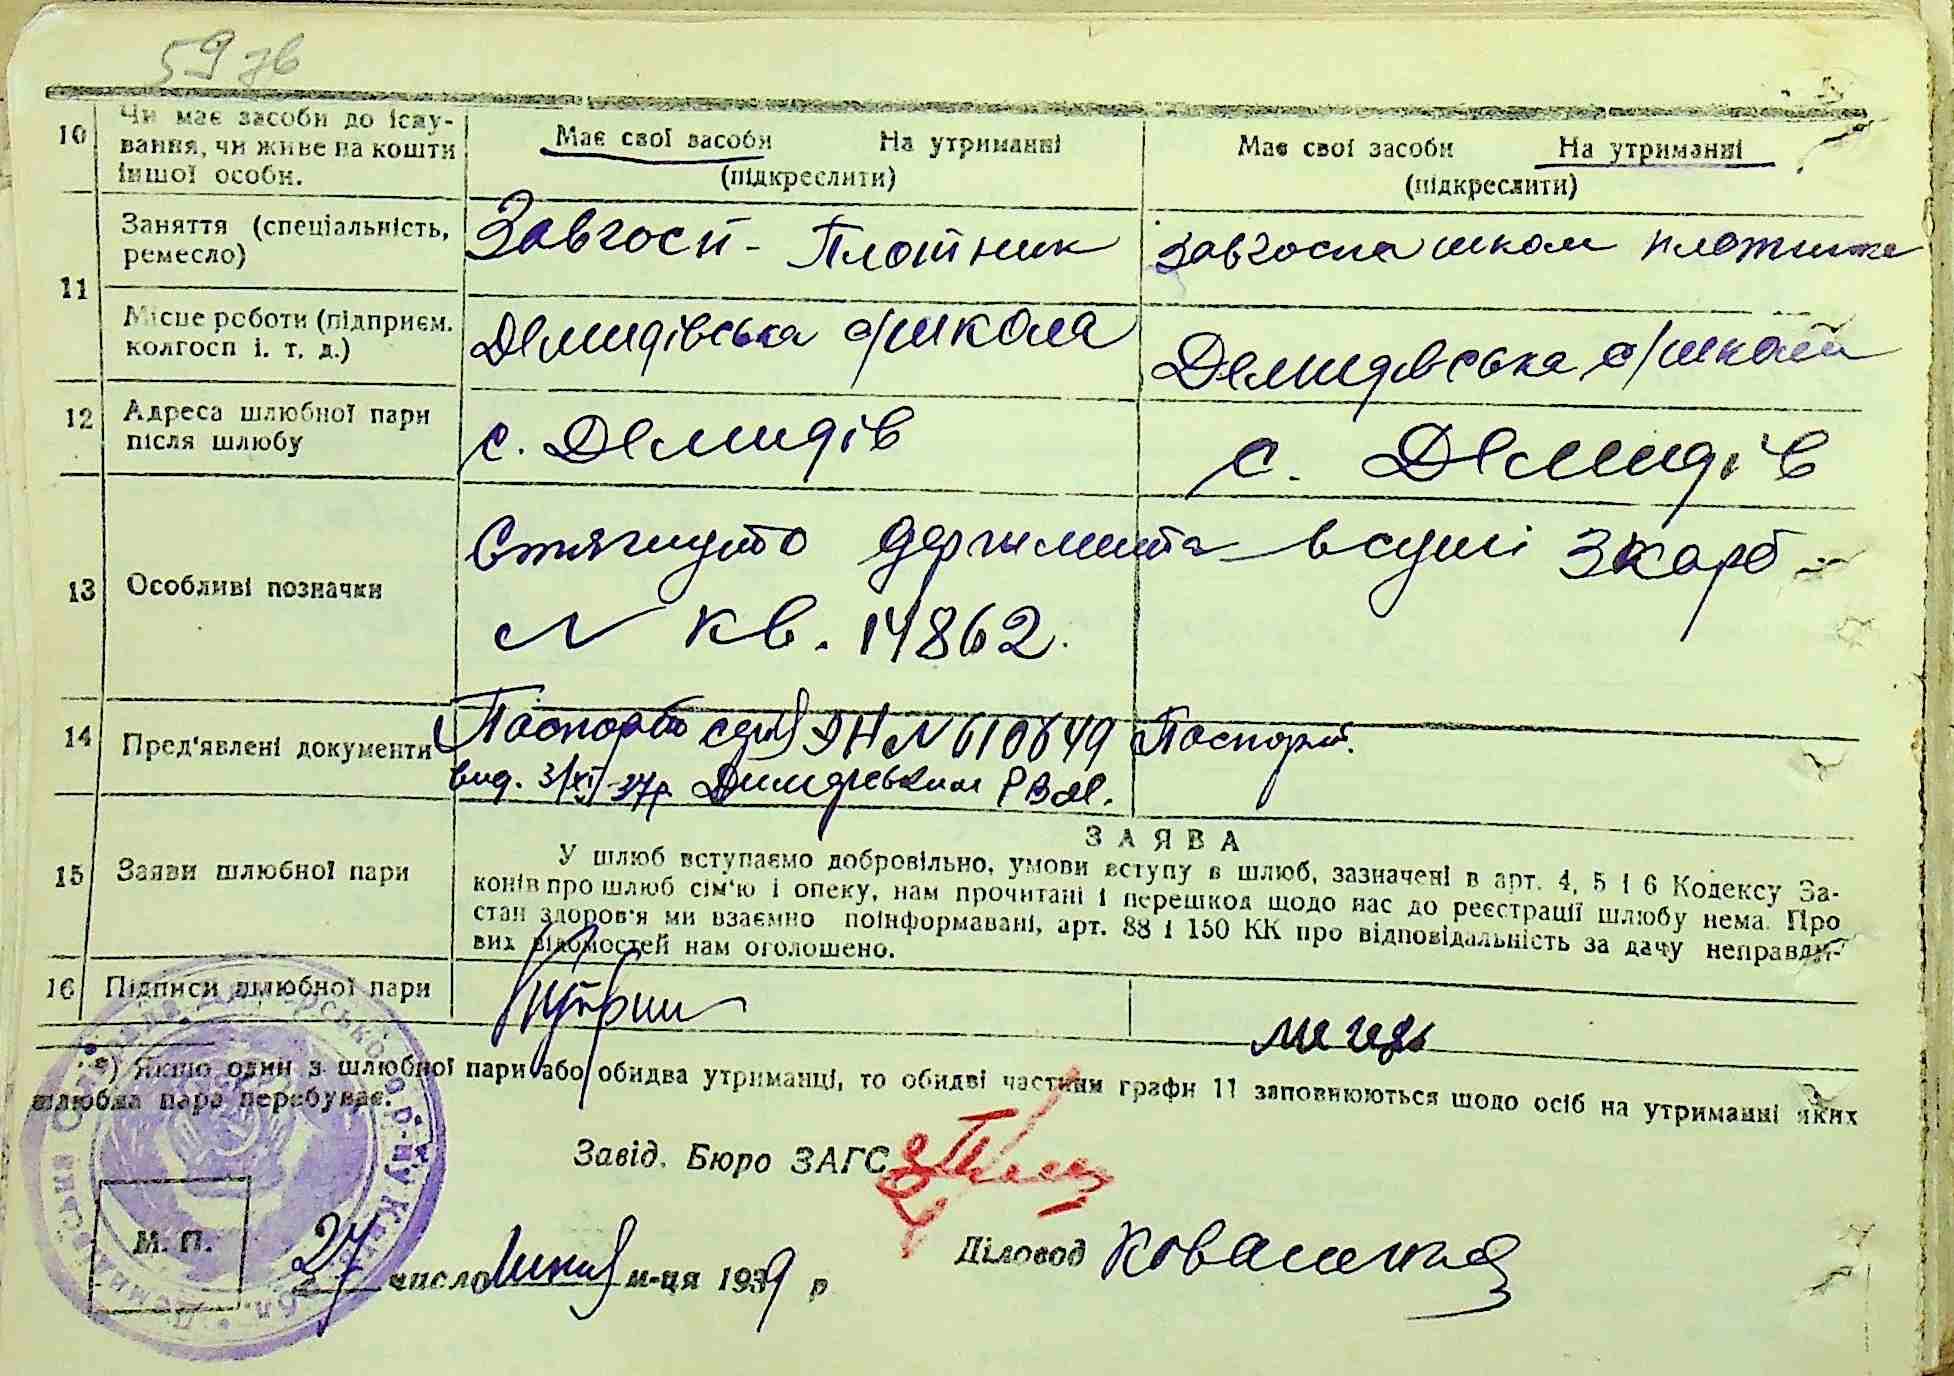 59 зв
10 Чи має засоби до існу-
вання, чи живе на кошти
іншої особи.
Має свої засоби На утриманні
(підкреслити)
Має свої засоби На утриманні
(підкреслити)
11 Заняття (спеціальність,
ремесло)
Завгосп - Плотник
Завгоспа школи плотника
Місце роботи (підприєм.
колгосп і. т. д.)
Демидівська с/школа
Демидівська с/школа
12 Адреса шлюбної пари
після шлюбу
с. Демидів
с. Демидів
13 Особливі позначки
Стягнуто держмита в сумі 3 карб
N кв. 14862.
14 Пред'явлені документи
Паспорт серія ЭН N 610649
вид. 3/XI-37р. Димерським РВМ.
Паспорт.
15 Заяви шлюбної пари
ЗАЯВА
У шлюб вступаємо добровільно, умови вступу в шлюб, зазначені в арт. 4, 5 і 6 Кодексу За-
конів про шлюб сім'ю і опеку, нам прочитані і перешкод щодо нас до реєстрації шлюбу нема. Про
стан здоров'я ми взаємно поінформавані, арт. 88 і 150 КК про відповідальність за дачу неправди-
вих відомостей нам оголошено.
16 Підписи шлюбної пари
*) Якщо один з шлюбної пари або обидва утриманці, то обидві частини графи 11 заповнюються щодо осіб на утриманні яких
шлюбна пара перебуває.
Завід. Бюро ЗАГС
М. П.
27 число м-ця 1939 р
Діловод